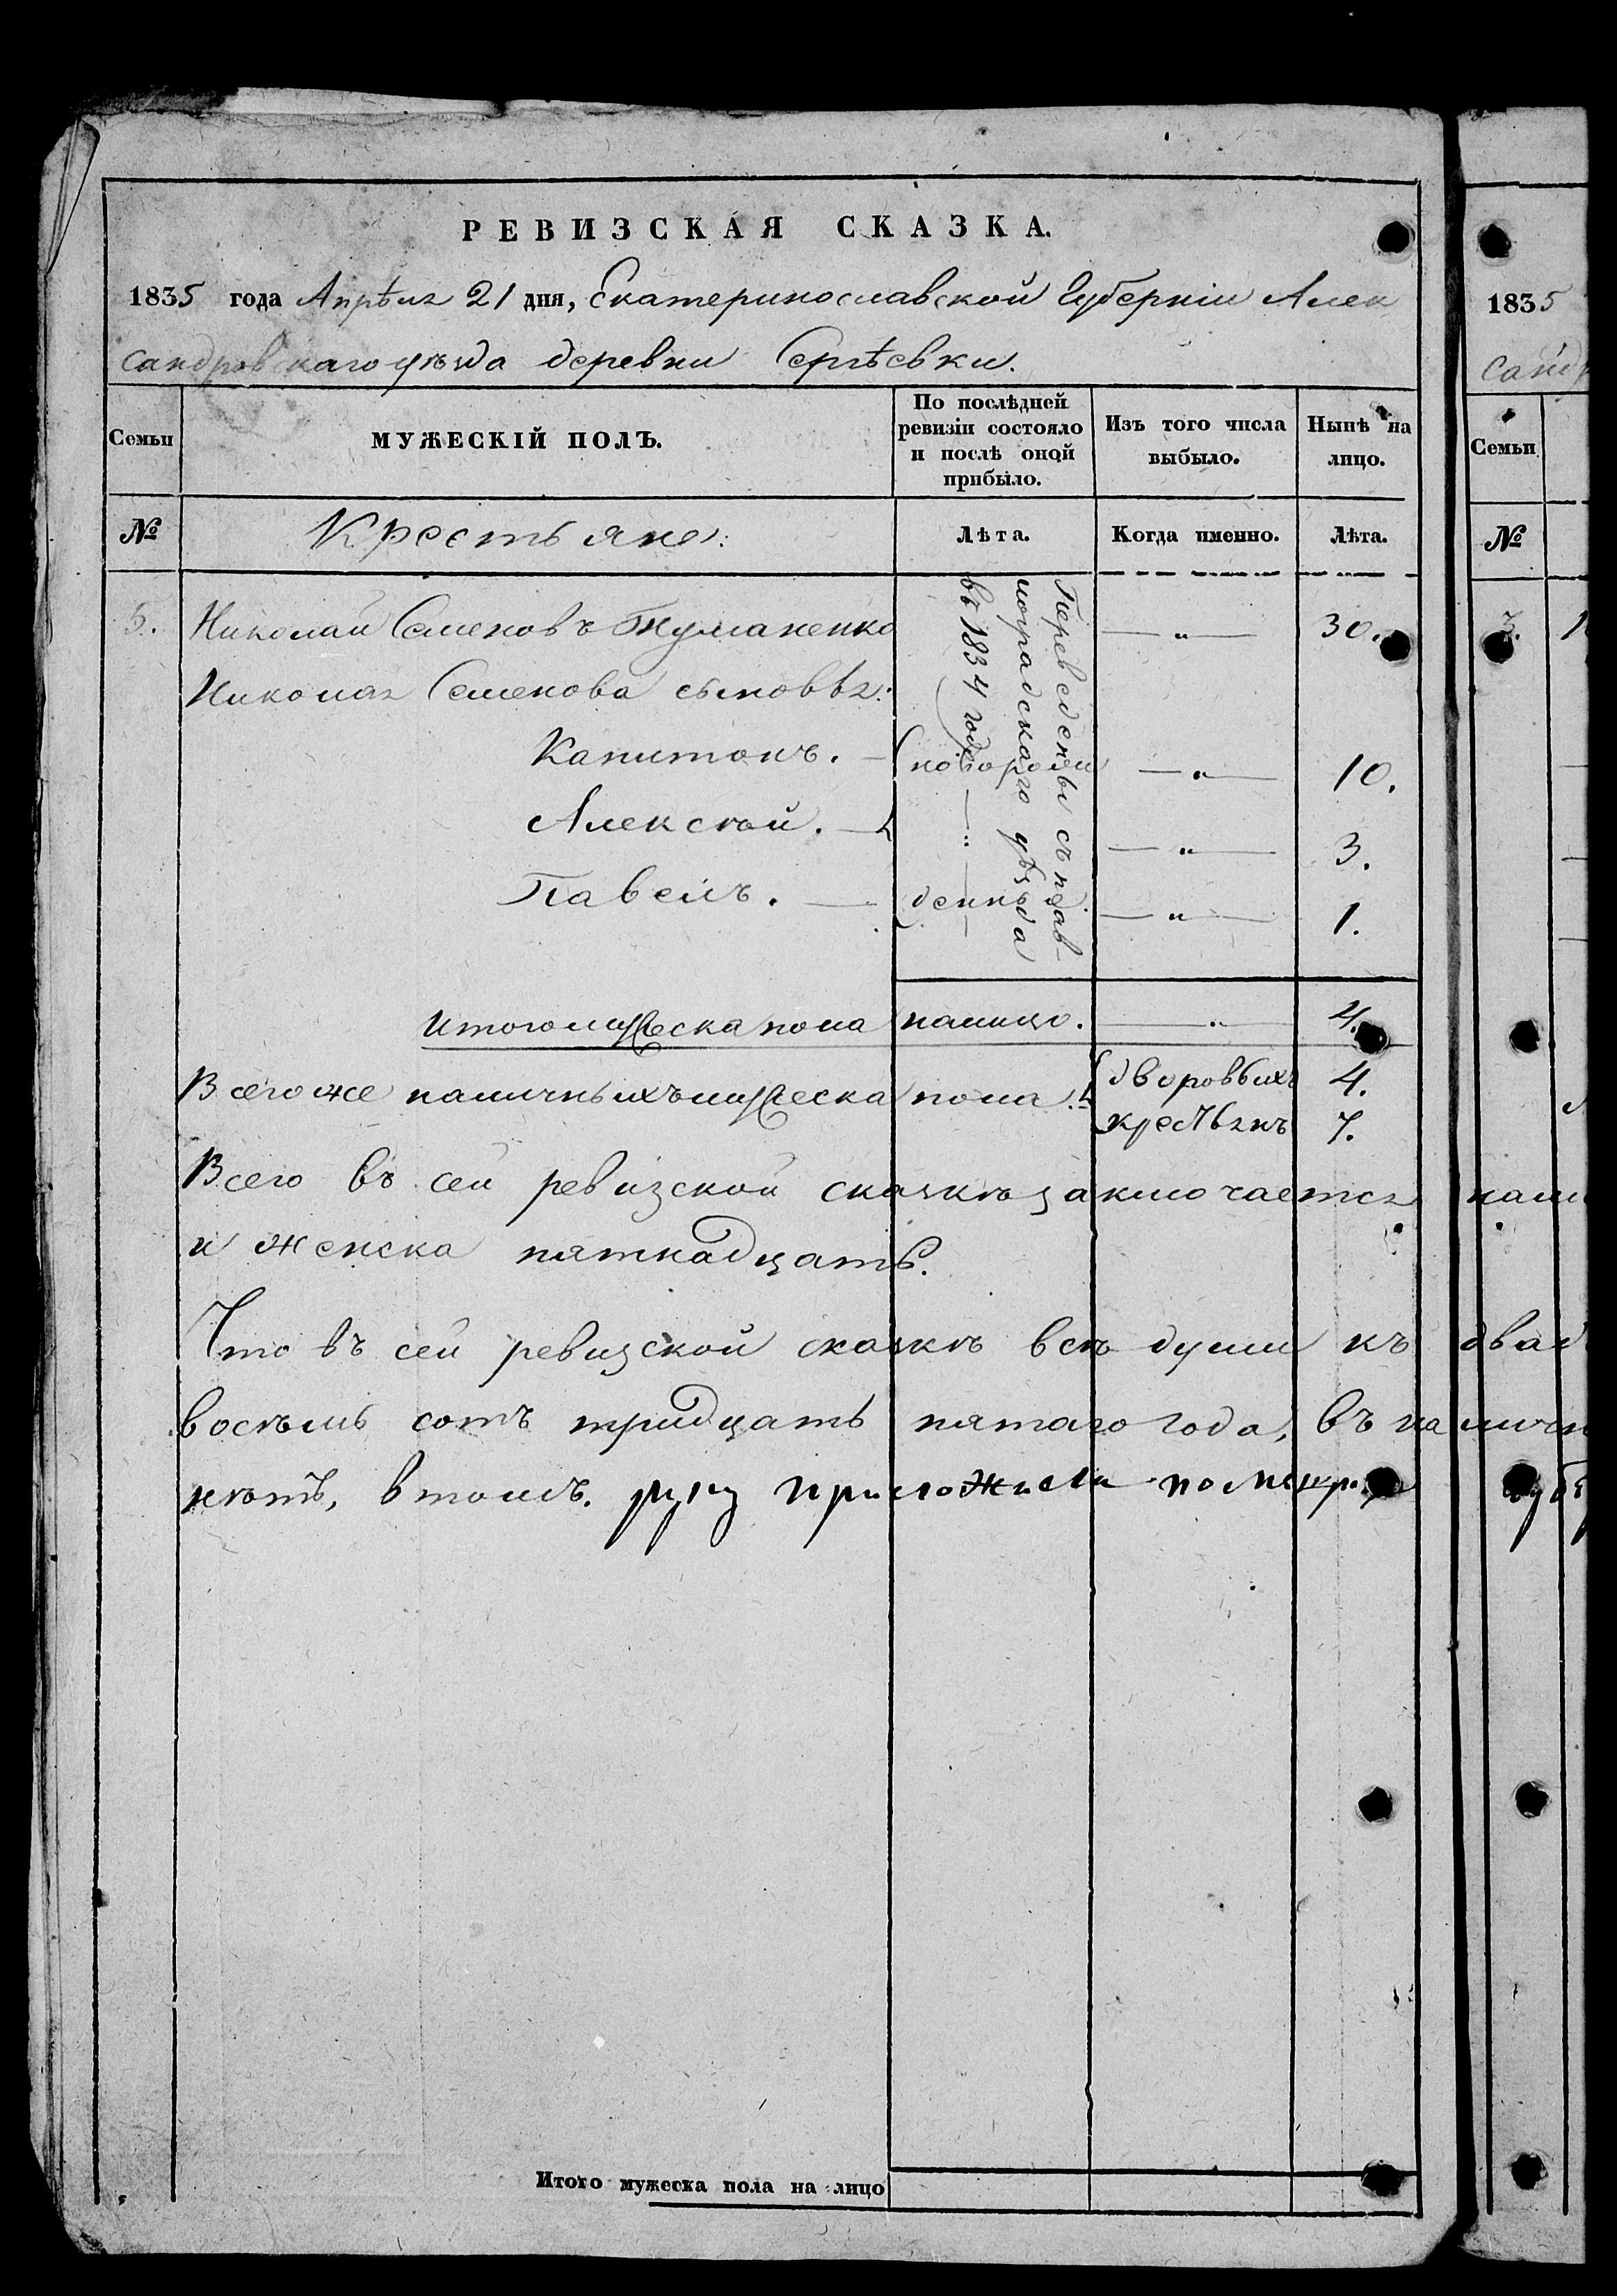 РЕВИЗСКАЯ СКАЗКА.
1835 года Апрѣля 21 дня, Екатеринославской Губерніи Алек
сандровскаго уѣзда деревни Сергѣевки.
Семьи
МУЖЕСКІЙ ПОЛЪ.
По послѣдней ревизіи состояло и послѣ оной прибыло.
Изъ того числа выбыло.
Нынѣ на лицо.
№
Крестьяне:
Лѣта.
Когда именно.
Лѣта.
5. Николай Семеновъ Тимуманенко — „ — 30.
Николая Семенова сыновья:
Капитонъ. — новорож — „ — 10.
Алексѣй. — „ — — „ — 3.
Павелъ. — денны — „ — 1.
Переведены съ Павлоградскаго уѣзда въ 1834 годѣ
Итого мужеска пола налицо. — „ — 4.
Всего же наличныхъ мужеска пола. дворовыхъ 4.
крестьянъ 7.
Всего въ сей ревизской сказкѣ заключается нали
и женска пятнадцать.
Что въ сей ревизской сказкѣ всѣ души къ двад
восѣмь сотъ тридцать пятаго года, въ наличн
нѣтъ, втомъ. руку приложила
Итого мужеска пола на лицо
1835
санд
Семьи
№
3.